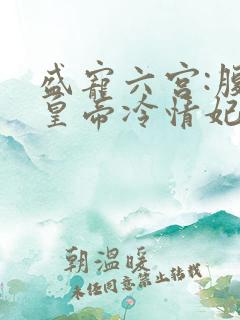 盛宠六宫:腹
皇帝冷情妃
朝温暖
未经同意禁止转载